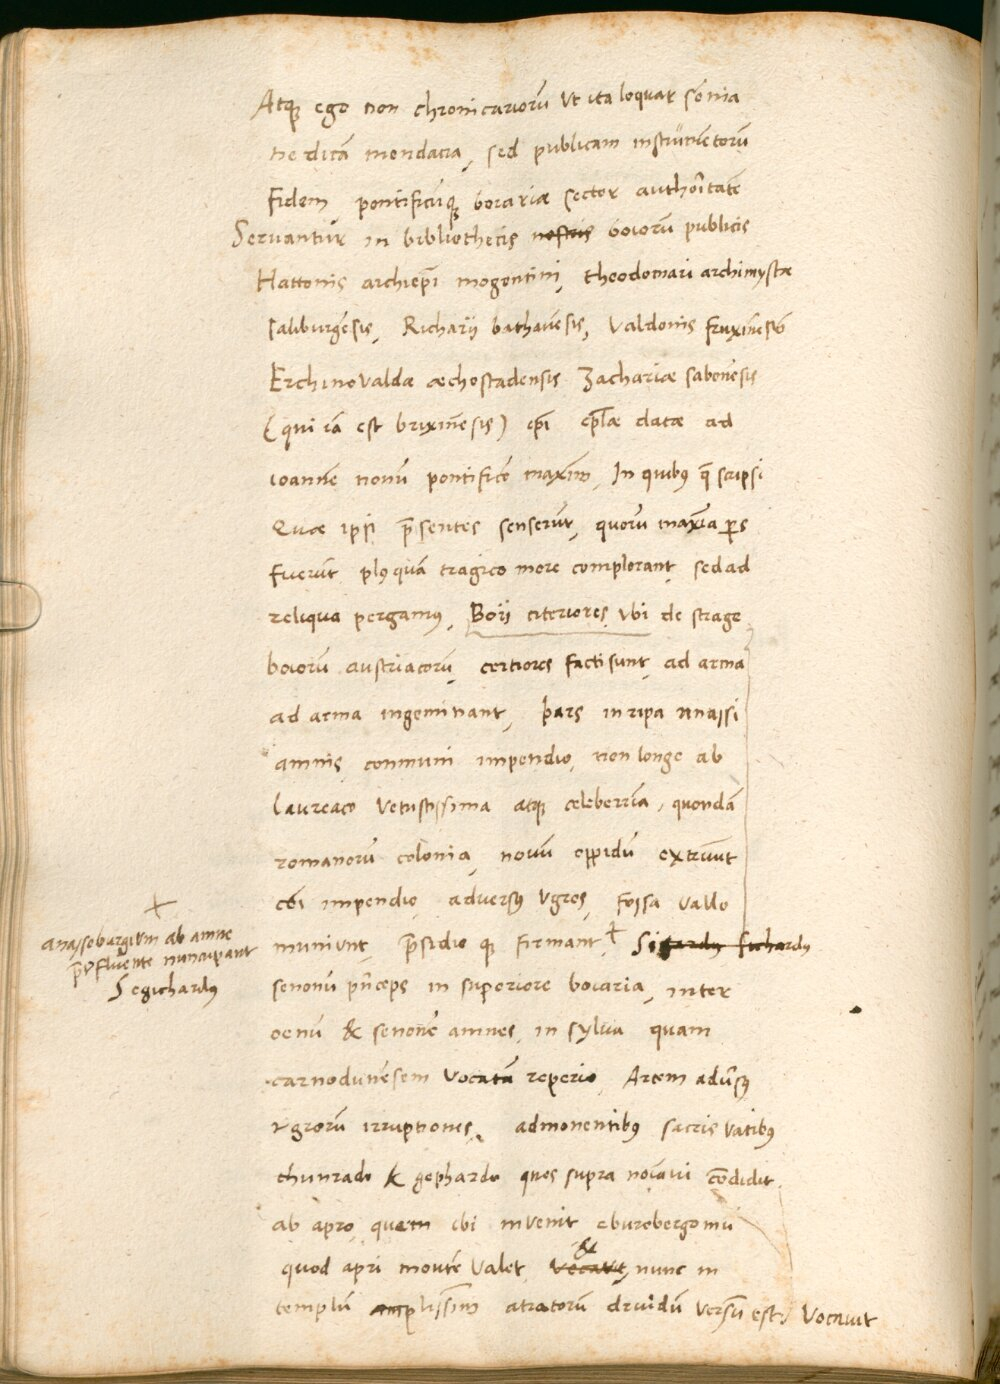 Atq; ego non chronicariorū vt ita loquar sōnia
ne dicā mendacia, sed publicam instrūmētorū
fidem pontificūq; boiariæ sector authoritatē
Servantur in bibliothecis nostris boiorū publicis
Hattonis archiepī mogontini, theodomari archimystæ
saliburgēsis, Richarij bathavēsis, Valdonis fruxinēsis
Erchinovaldæ æchostadensis Zachariæ sabonēsis
(qui iā est brixinēsis) epī eplæ datæ ad
ioannē nonū pontificē maxim, In quibus q̄ scripsi
Quæ ipsi p̄sentes senserūt, quorū maxīa ps
fuerūt plusquā tragico more complorant, sed ad
reliqua pergamus, Boij citeriores, vbi de strage
boiorū austriacorū, certiores facti sunt, ad arma
ad arma ingeminant, pars in ripa anassi
amnis communi impendio, non longe ab
laureaco vetustissima atq; celeberrīa, quondā
romanorū colonia, novū oppidū extruūt
cōi impendio, adversus vgros, fossa vallo
muniunt, p̄sidio q; firmant † Sigardus fuchardus
senonū pn̄ceps in superiore boiaria, inter
oenū & senonē amnes, in sylva quam
carnodunēsem vocatā reperio, Arcem adūsus
vgrorū irruptiones, admonentibus sacris vatibus
thunrado & gephardo quos supra noīavi cōdidit
ab apro, quem ibi invenit eburobergomū
quod apri montē valet, vocavit, & nunc in
templū amplissim̄ atratorū druidū versū est, vocavit
+
anassoburgium ab amne
p̄fluente nuncupant
Segichardus